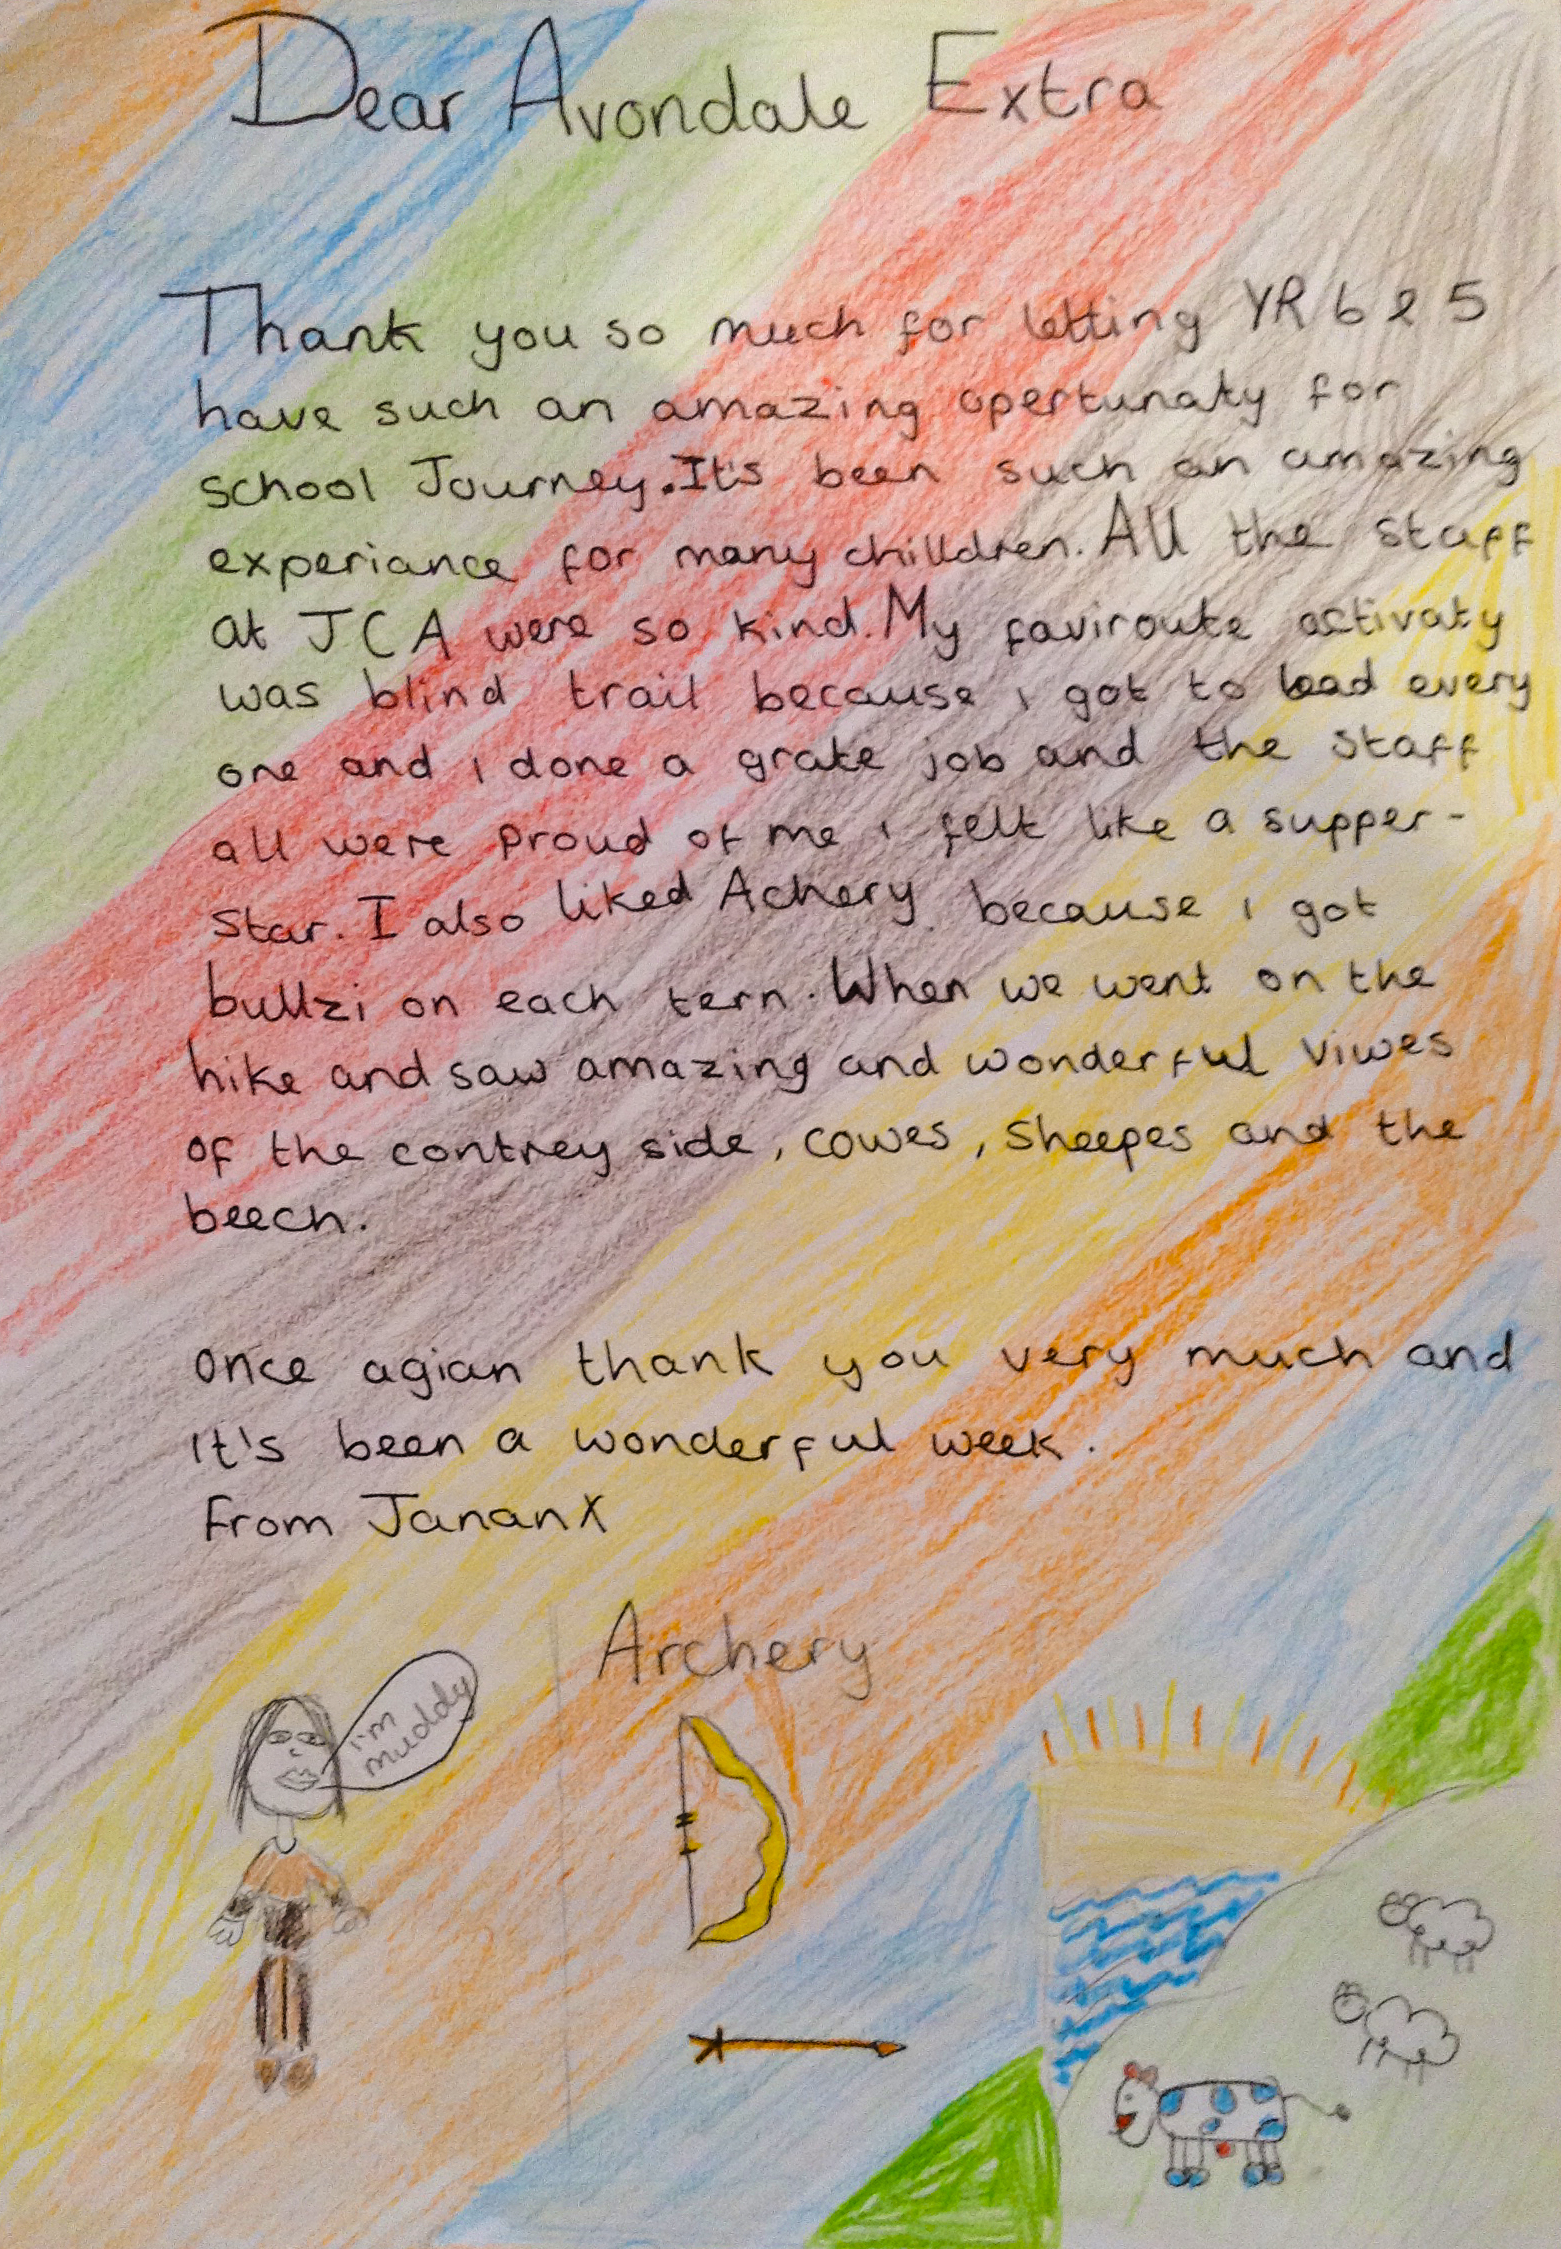 Dear Avondale Extra
Thank you so much for letting YR 6 & 5
have such an amazing opertunaty for
school Journey. It's been such an amazing
experiance for many chilldren. All the staff
at JCA were so kind. My faviroute activaty
was blind trail because i got to lead every
one and i done a grate job and the staff
all were proud of me i felt like a supper-
star. I also liked Achery because i got
bullzi on each tern. When we went on the
hike and saw amazing and wonderful viwes
of the contrey side, cowes, sheepes and the
beech.
Once agian thank you very much and
it's been a wonderful week.
From Janan X
Archery
i'm
muddy